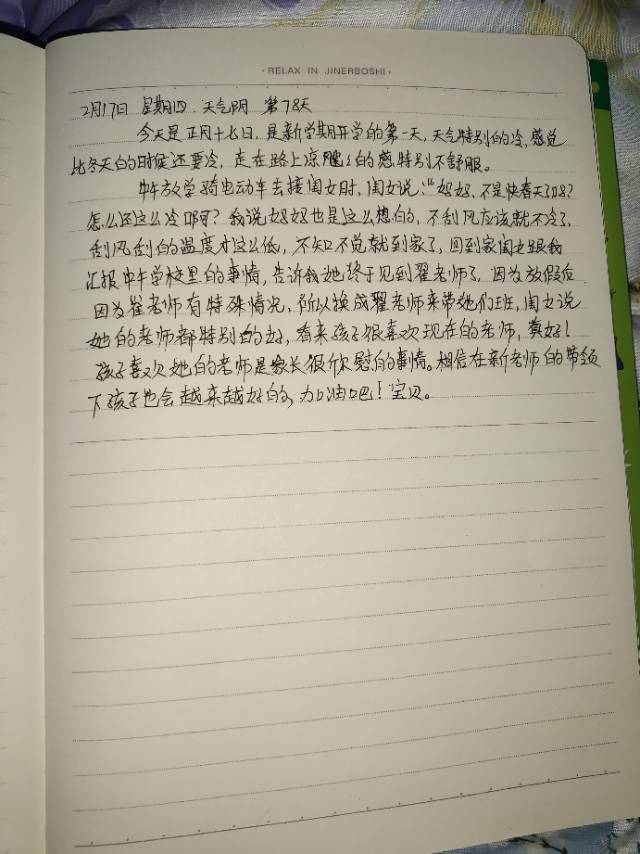 · RELAX IN JINERBOSHI ·
2月17日 星期四 天气阴 第78天
今天是正月十七日,是新学期开学的第一天,天气特别的冷,感觉
比冬天的时候还要冷,走在路上凉飕飕的感特别不舒服。
中午放学骑电动车去接闺女时,闺女说:“妈妈,不是快春天了吗?
怎么还这么冷啊?我说妈妈也是这么想的,不刮风应该就不冷了,
刮风刮的温度才这么低,不知不觉就到家了,回到家闺女跟我
汇报中午学校里的事情,告诉我她终于见到翟老师了,因为放假后
因为崔老师有特殊情况,所以换成翟老师来带她们班,闺女说
她的老师都特别的好,看来孩子很喜欢现在的老师,真好!
孩子喜欢她的老师是家长很欣慰的事情。相信在新老师的带领
下孩子也会越来越好的,加油吧!宝贝。